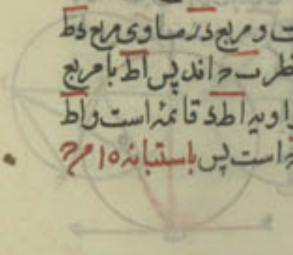 ت و مربع در مساوی مربع دط
اند پس اط با مربع
زاویه اطد قائمه است و اط
است پس باستبانه ۱۵ م ۳